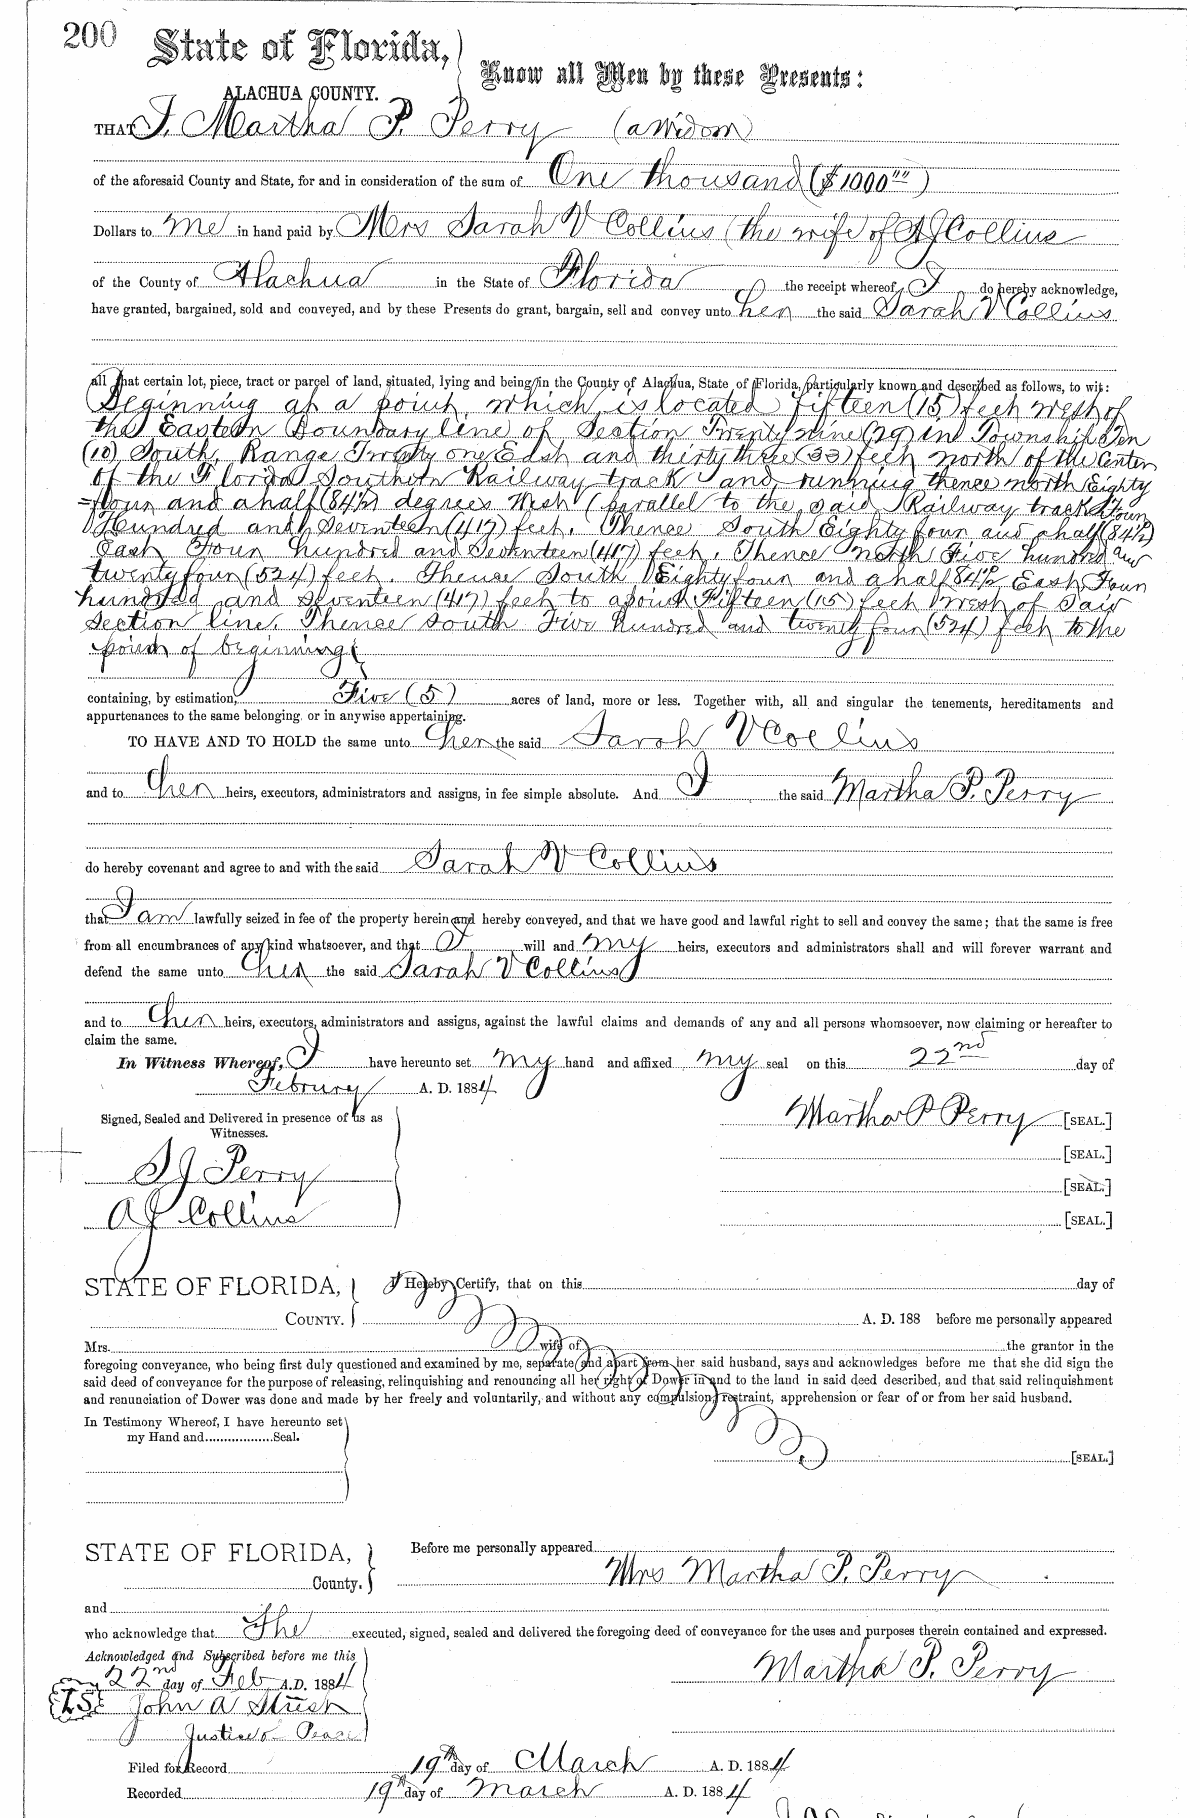 200
State of Florida, Know all Men by these Presents:
ALACHUA COUNTY.
THAT I, Martha P. Perry (a Widow)
of the aforesaid County and State, for and in consideration of the sum of One thousand ($1000"")
Dollars to me in hand paid by Mrs Sarah V Collins (the wife of A J Collins
of the County of Alachua in the State of Florida the receipt whereof I do hereby acknowledge,
have granted, bargained, sold and conveyed, and by these Presents do grant, bargain, sell and convey unto her the said Sarah V Collins
all that certain lot, piece, tract or parcel of land, situated, lying and being in the County of Alachua, State of Florida, particularly known and described as follows, to wit:
Beginning at a point, which is located fifteen (15) feet west of
the Eastern Boundary line of Section Twenty nine (29) in Township Ten
(10) South, Range Twenty one East and thirty three (33) feet north of the Center
of the Florida Southern Railway track and running thence north Eighty
=four and a half (84½) degrees West (parallel to the said Railway track) Four
Hundred and Seventeen (417) feet. Thence South Eighty four and a half (84½)
East Four hundred and Seventeen (417) feet. Thence north Five hundred and
twenty four (524) feet. Thence South Eighty four and a half 84½ East Four
hundred and seventeen (417) feet to a point Fifteen (15) feet West of said
section line. Thence South Five hundred and twenty four (524) feet to the
point of beginning
containing, by estimation, Five (5) acres of land, more or less. Together with, all and singular the tenements, hereditaments and
appurtenances to the same belonging or in anywise appertaining.
TO HAVE AND TO HOLD the same unto her the said Sarah V Collins
and to her heirs, executors, administrators and assigns, in fee simple absolute. And I the said Martha P. Perry
do hereby covenant and agree to and with the said Sarah V Collins
that I am lawfully seized in fee of the property herein and hereby conveyed, and that we have good and lawful right to sell and convey the same; that the same is free
from all encumbrances of any kind whatsoever, and that I will and my heirs, executors and administrators shall and will forever warrant and
defend the same unto her the said Sarah V Collins
and to her heirs, executors, administrators and assigns, against the lawful claims and demands of any and all persons whomsoever, now claiming or hereafter to
claim the same.
In Witness Whereof, I have hereunto set my hand and affixed my seal on this 22nd day of
Februry A. D. 1884
Signed, Sealed and Delivered in presence of us as
Witnesses.
Martha P Perry [SEAL.]
[SEAL.]
S J Perry [SEAL.]
A J Collins [SEAL.]
STATE OF FLORIDA, I Hereby Certify, that on this day of
COUNTY. A. D. 188 before me personally appeared
Mrs. wife of the grantor in the
foregoing conveyance, who being first duly questioned and examined by me, separate and apart from her said husband, says and acknowledges before me that she did sign the
said deed of conveyance for the purpose of releasing, relinquishing and renouncing all her right of Dower in and to the land in said deed described, and that said relinquishment
and renunciation of Dower was done and made by her freely and voluntarily, and without any compulsion, restraint, apprehension or fear of or from her said husband.
In Testimony Whereof, I have hereunto set
my Hand and..................Seal.
[SEAL.]
STATE OF FLORIDA, Before me personally appeared
County. Mrs Martha P. Perry
and
who acknowledge that She executed, signed, sealed and delivered the foregoing deed of conveyance for the uses and purposes therein contained and expressed.
Acknowledged and Subscribed before me this
22nd day of Feb A.D. 1884 Martha P. Perry
LS John A
Justice of Peace
Filed for Record 19th day of March A. D. 1884
Recorded 19th day of March A. D. 1884